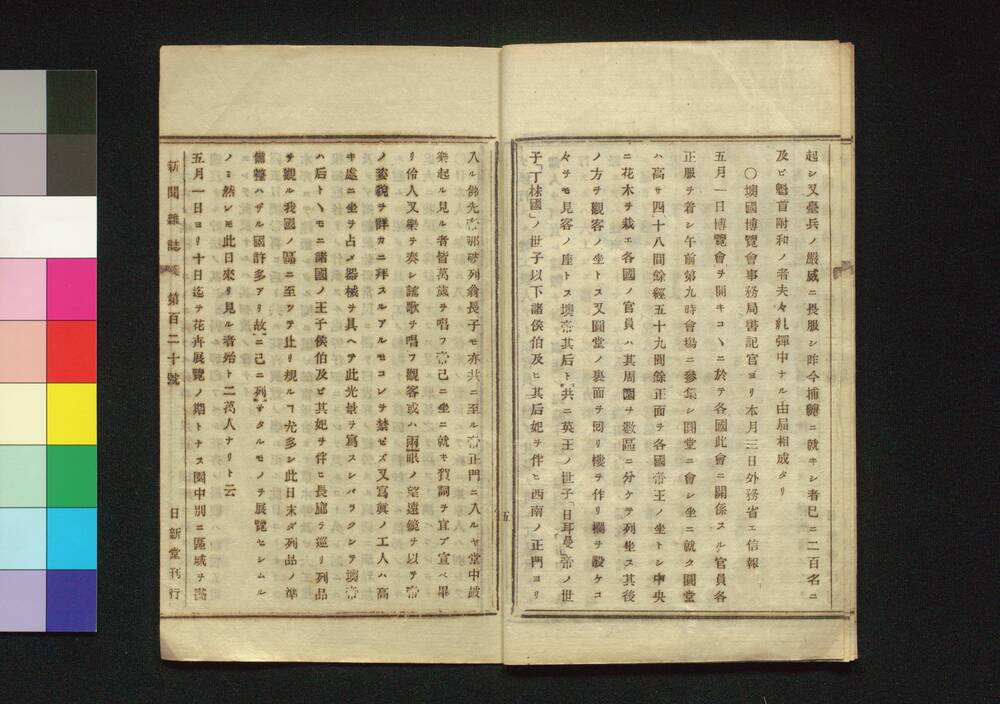 起シ又臺兵ノ嚴威ニ畏服シ昨今捕縛ニ就キシ者已ニ二百名ニ
及ビ魁首附和ノ者夫々糺彈中ナル由屆相成タリ
〇墺國博覽會事務局書記官ヨリ本月三日外務省エ信報
五月一日博覽會ヲ開キコヽニ於テ各國此會ニ關係スル官員各
正服ヲ着シ午前第九時會場ニ參集シ圓堂ニ會シ坐ニ就ク圓堂
ハ高サ四十八間餘經五十九間餘正面ヲ各國帝王ノ坐トシ中央
ニ花木ヲ栽エ各國ノ官員ハ其周圍ヲ數區ニ分ケテ列坐ス其後
ノ方ヲ觀客ノ坐トス又圓堂ノ裏面ヲ回リ樓ヲ作リ欄ヲ設ケコ
々ヲモ見客ノ座トス墺帝其后ト共ニ英王ノ世子「日耳曼」帝ノ世
子「丁抹國」ノ世子以下諸侯伯及ヒ其后妃ヲ伴ヒ西南ノ正門ヨリ
五
入ル佛先帝那破列翁長子モ亦共ニ至ル帝正門ニ入ルヤ堂中鼓
樂起ル見ル者皆萬歲ヲ唱フ帝己ニ坐ニ就キ賀詞ヲ宣ブ宣ベ畢
リ伶人又樂ヲ奏シ謠歌ヲ唱フ觀客或ハ兩眼ノ望遠鏡ヲ以テ帝
ノ姿貌ヲ詳カニ拜スルアルモコレヲ禁ゼズ又寫眞ノ工人ハ高
キ處ニ坐ヲ占メ器械ヲ具ヘテ此光景ヲ寫スシバラクシテ墺帝
ハ后トヽモニ諸國ノ王子侯伯及ビ其妃ヲ伴ヒ長廊ヲ巡リ列品
ヲ觀ル我國ノ區ニ至ツテ止リ規ルヿ尤多シ此日末ダ列品ノ準
備整ハザル國許多アリ故ニ己ニ列ヲタルモノヲ展覽セシムル
ノミ然レ𪜈此日來リ見ル者殆ト二萬人ナリト云
五月一日ヨリ十日迄ヲ花卉展覽ノ期トナス園中別ニ區域ヲ
新聞雜誌 第百二十號 日新堂刊行